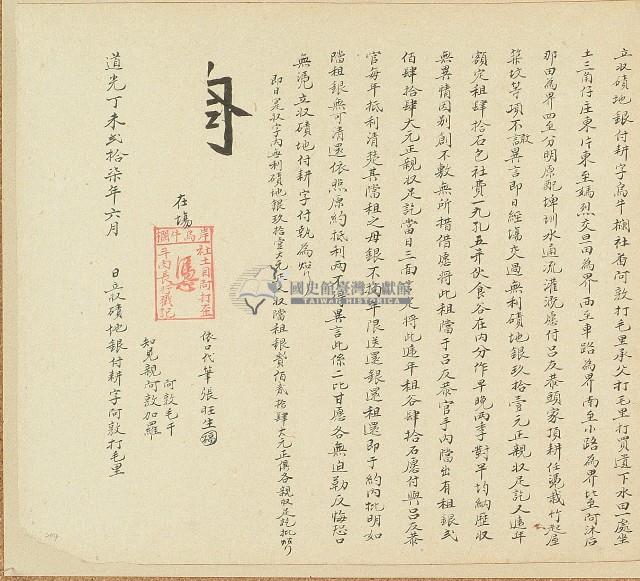 立収磧地銀付耕字烏牛欄社番阿敦打毛里承父打毛里打買遺下水田一處坐
土三角仔庄東片東至媽烈交旦田為界西至車路為界南至小路為界北至阿沐后
那田為界四至分明原配埤圳水通流灌溉愿付呂反恭頭家頂耕任從栽竹起屋
築坟等項不敢異言即日經塲交過無利磧地銀玖拾壹元正親収足訖人遞年
額定租肆拾石包社費一九孔五辛伙食谷在內分作早晚兩季對平均納歴収
無異情因别創不敷無所措借愿將此租當于呂反恭官手內當出有租銀弍
佰肆拾肆大元正親収足訖當日三面 定將此遞年租谷肆拾石愿付與呂反恭
官每年抵利清楚其當租之母銀不拘年限送還銀還租還即于約內批明如
當租銀無可清還依照原約抵利兩不 異言此係二比甘愿各無迫勒反悔恐口
無凴立収磧地付耕字付執為炤
即日足収字內無利磧地銀玖拾壹大元正又収當租銀貳佰肆拾肆大元正俱各親収足訖批炤
依口代筆張旺生
阿敦毛干
知見親阿敦加羅
在塲
岸 烏牛欄
社土目阿打歪
憑
斗內長行戳記
道光丁未弍拾柒年六月 日立収磧地銀付耕字阿敦打毛里
國史館臺灣文獻館
TAIWAN HISTORICA